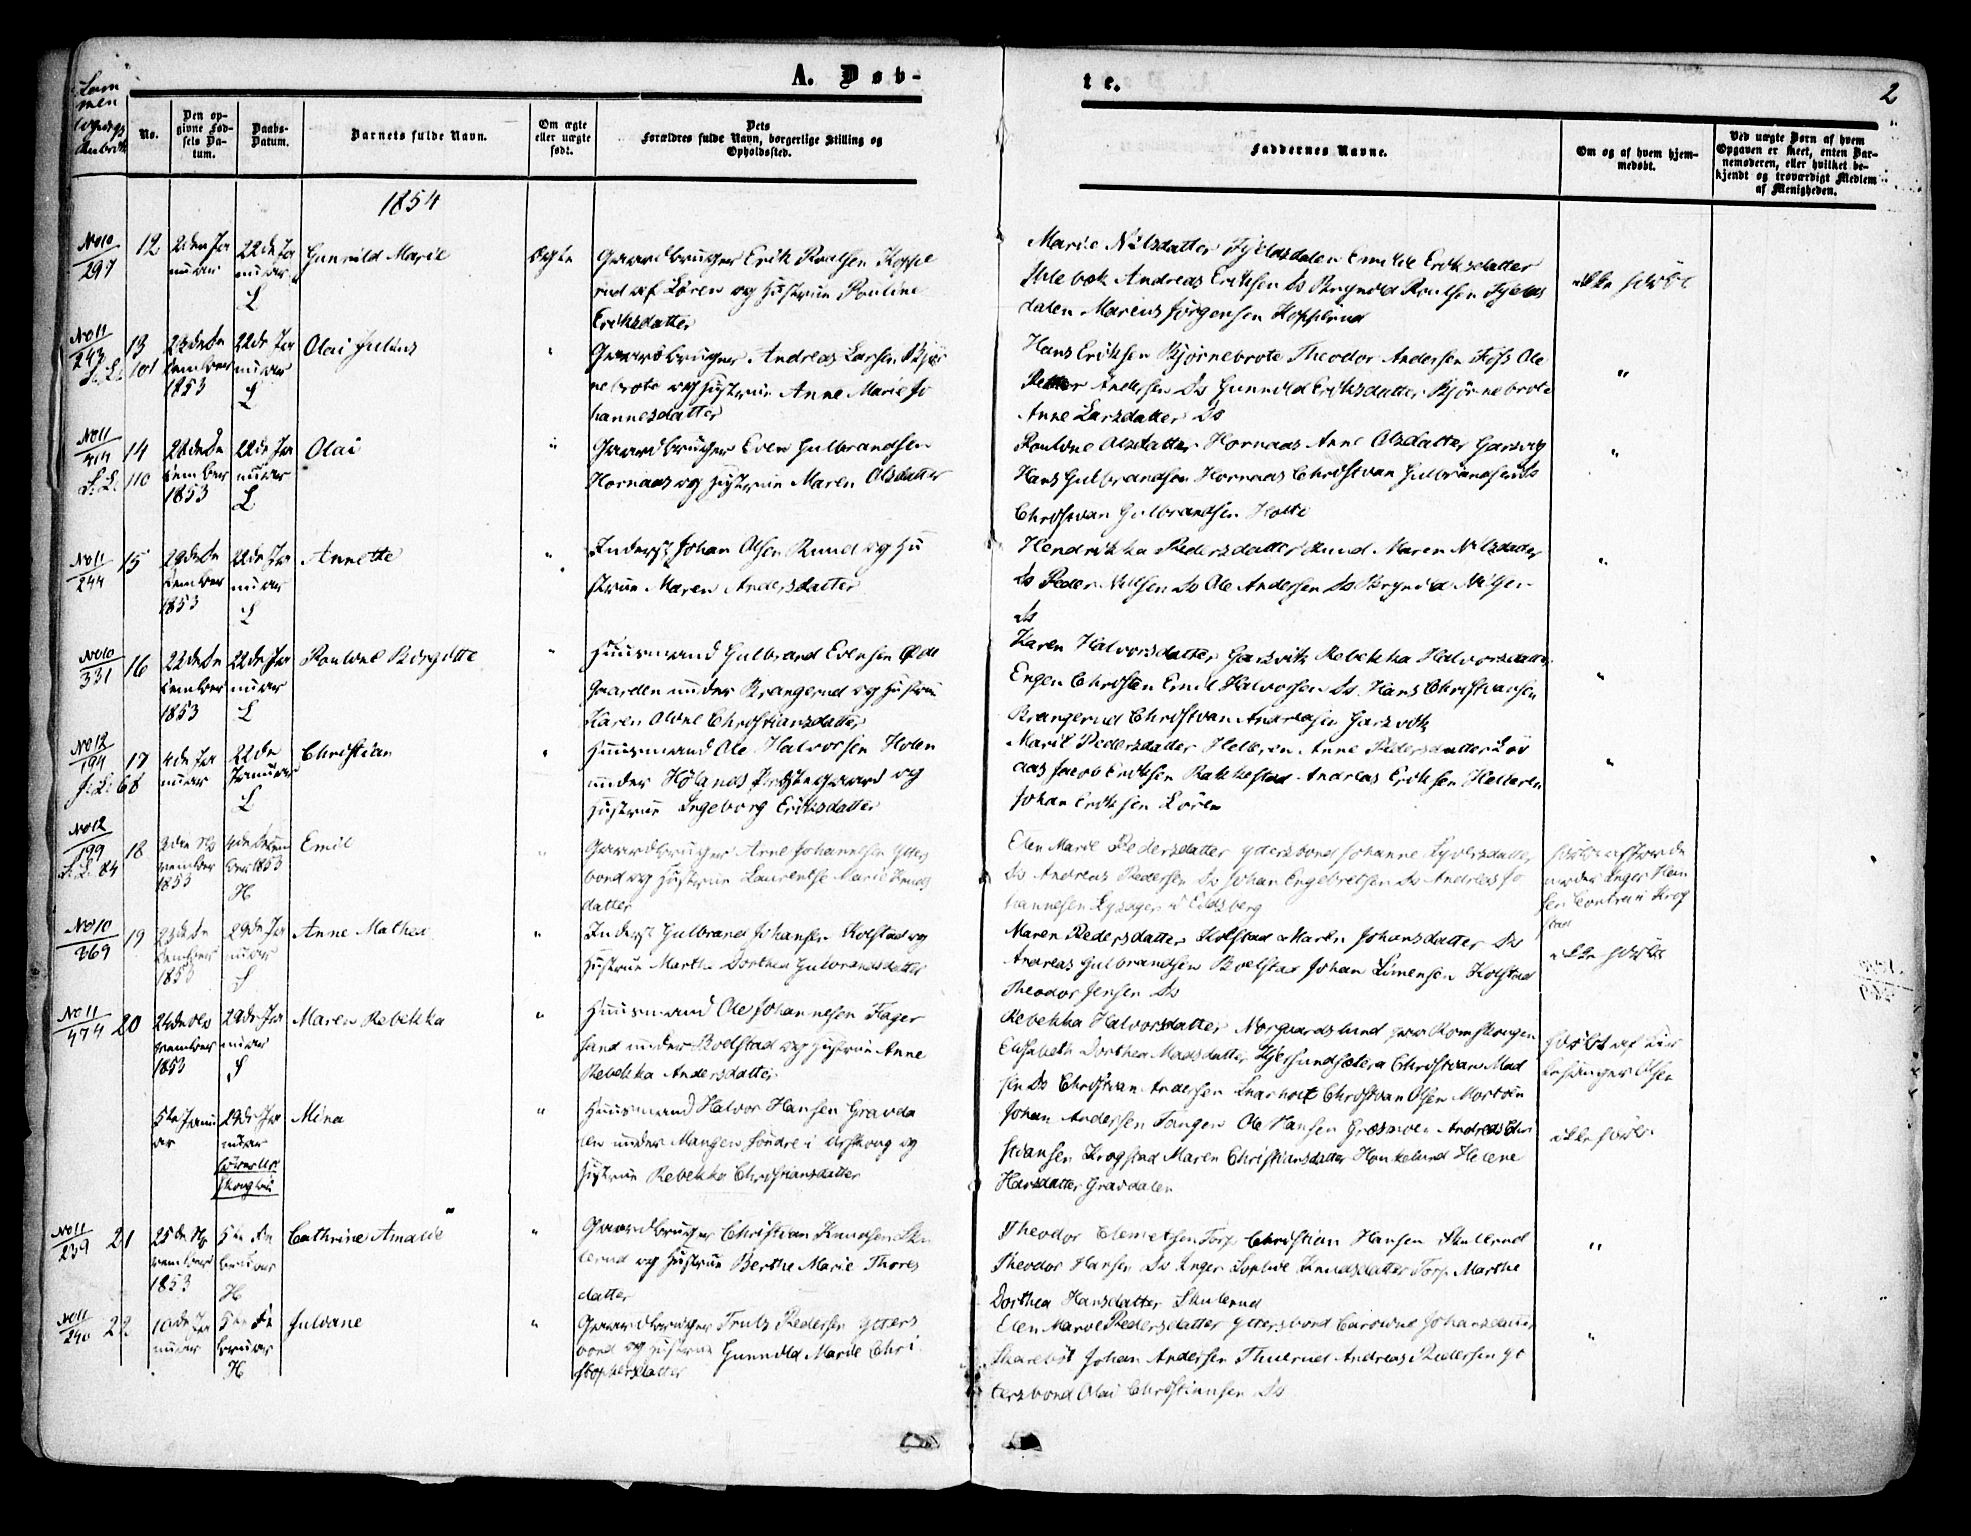 A. Døb-
te.
2
No.
Den opgivne Fødsels Datum.
Daabs-Datum.
Barnets fulde Navn.
Om ægte eller uægte født.
Dets
Forældres fulde Navn, borgerlige Stilling og
Opholdssted.
Faddernes Navne.
Om og af hvem hjemmedøbt.
Ved uægte Børn af hvem
Opgaven er skeet, enten Barnemoderen, eller hvilket bekjendt og troværdigt Medlem
af Menigheden.
1854
No 10
297
12
2den Januar
22de Januar
L
Gunnild Marie
Ægte
Gaardbruger Erik Poulsen Kople
rud af Løren og Hustrue Pouline
Eriksdatter
Marie Nilsdatter Fjeldsdalen Emilie Eriksdatter
Andreas Eriksen Ds Brynild Poulsen Fjelds
dalen Marius Jørgensen Kopplerud
ikke hjdøbt
No 11
243
S. L. 101
13
December
1853
22de Januar
L
Olai Julius
"
Gaardbruger Andreas Larsen Bjør
nebrote og Hustrue Anne Marie Jo
hannesdatter
Hans Eriksen Bjørnebrote Theodor Andersen Foss Ole
Petter Andersen Ds Gunnild Eriksdatter Bjørnebrote
Anne Larsdatter Ds
"
No 11
S. L. 110
14
28de December
1853
22de Januar
L
Olai
"
Gaardbruger Even Gulbrandsen
Hornaas og Hustrue Maren Olsdatter
Olsdatter Hornaas Anne Olsdatter Garsvig
Hans Gulbrandsen Hornaas Christian Gulbrandsen Ds
Christian Gulbrandsen Holte
"
No 11
244
15
29de December
1853
22de Januar
L
Annette
"
Inderst Johan Olsen Rund og Hu
strue Maren Andersdatter
Hendrikka Pedersdatter Rund Maren Nilsdatter
Ds Peder Nilsen Ds Ole Andersen Ds Brynild
Ds
"
No 10
331
16
22de December
1853
22de Januar
L
Birgitte
"
Huusmand Gulbrand Evensen Øde
Gaarden under Brangerud og Hustrue
Karen Oline Christiansdatter
Karen Halvorsdatter Garsvik Rebekka Halvorsdatter
Engen Christen Emil Halvorsen Ds Hans Christiansen
Brangerud Christian Andreasen Garsvik
"
No 12
194
S. L. 68
17
4de Januar
22de
Januar
L
Christian
"
Huusmand Ole Halvorsen Holen
under Hølands Prestegaard og
Hustrue Ingeborg Eriksdatter
Marie Pedersdatter Helleren Anne Pedersdatter Løv
aas Jacob Eriksen Rakkestad Andreas Eriksen Helleren
Johan Eriksen Løren
"
No 12
199
S. L. 84
18
November
1853
4de December 1853
H
Emil
"
Gaardbruger Arne Johannesen Ytters
bond og Hustrue Laurentse Marie Knuds
datter
Elen Marie Pedersdatter Yttersbond Johanne Syversdatter
Ds Andreas Pedersen Ds Johan Engebretsen Ds Andreas Jo
hannesen i Eidsberg
No 10
269
19
December
1853
29de Januar
S
Anne Mathea
"
Inderst Gulbrand Johansen Kolstad og
Hustrue Marthe Dorthea Gulbrandsdatter
Maren Pedersdatter Kolstad Maren Johansdatter Ds
Andreas Gulbrandsen Boelstad Johan Simensen Kolstad
Theodor Jensen Ds
ikke hjdøbt
No 11
474
20
November
1853
29de Januar
S
Maren Rebekka
"
Huusmand Ole Johannesen Fager
land under Boelstad og Hustrue Anne
Rebekka Andersdatter
Rebekka Halvorsdatter Norgaardslund paa Romskougen
Elisabeth Dorthea Madsdatter Christian Mad
sen Ds Christian Andersen Christian Olsen
hjdøbt af Kir
kesanger Olsen
5te Januar
29de Januar
Mina
"
Huusmand Halvor Hansen Gravda
len under Mangen Søndre i Urskoug og
Hustrue Rebekka Christiansdatter
Johan Andersen Tangen Ole Hansen Græsmoen Andreas Chri
stiansen Krogstad Maren Christiansdatter Helene
Hansdatter Gravdalen
No 11
239
21
25de November
1853
5te Februar
H
Cathrine Amalie
"
Gaardbruger Christian Knudsen Sku
lerud og Hustrue Berthe Marie Thores
datter
Theodor Clemetsen Torp Christian Hansen Skulerud
Theodor Hansen Ds Inger Sophie Knudsdatter Torp Marthe
Dorthea Hansdatter Skulerud
"
No 11
240
22
10de Januar
5te Februar
H
Juliane
"
Gaardbruger Truls Pedersen Ytters
bond og Hustrue Gunnild Marie Chri
stophersdatter
Elen Marie Pedersdatter Yttersbond Caroline Johansdatter
Johan Andersen Thuerud Andreas Pedersen Yt
tersbond Olai Christiansen Ds
"